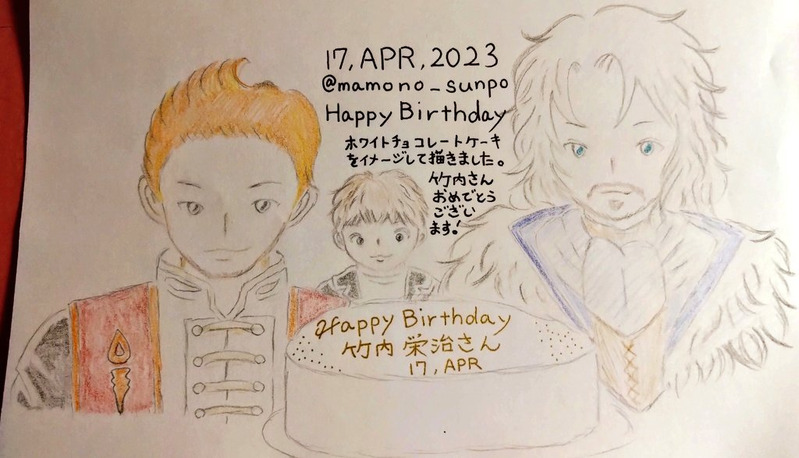 17, APR, 2023
@mamono_sunpo
Happy Birthday
ホワイトチョコレートケーキ
をイメージして描きました。
竹内さん
おめでとう
ござい
ます!
Happy Birthday
竹内 栄治さん
17, APR